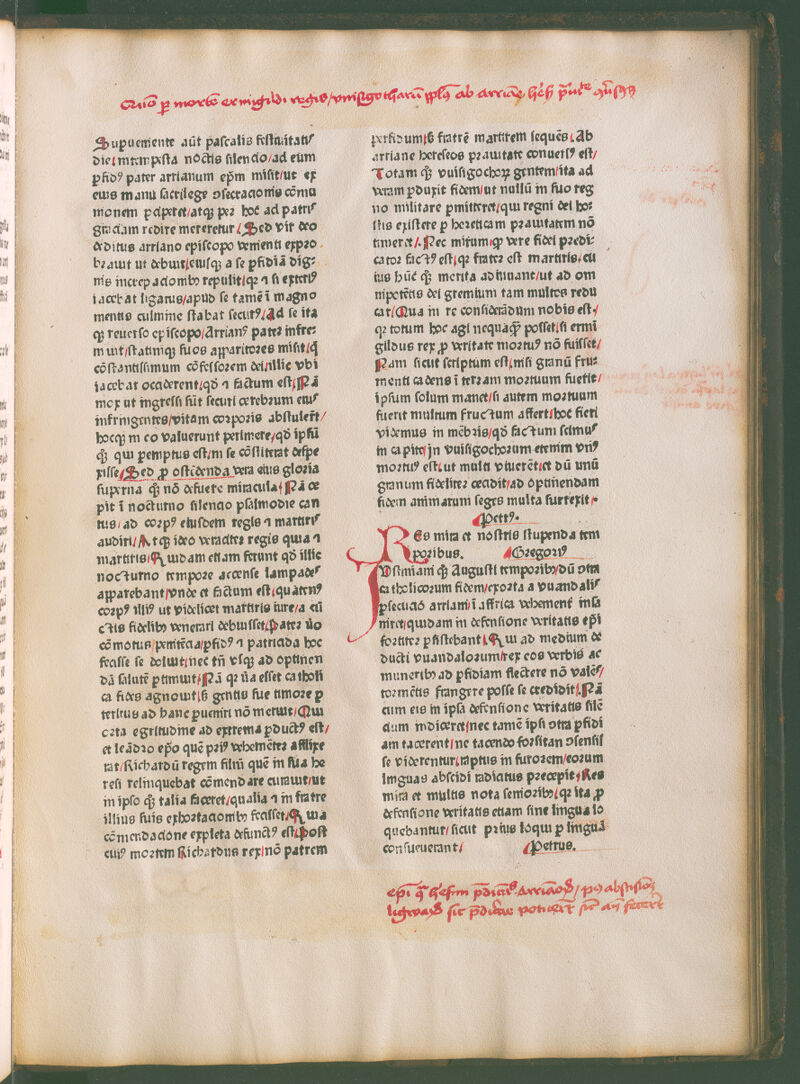 Quō ꝑ mortē ermigildi regis/vuisigothorū ab arriane
Supueniente aūt paſcalis feſtiuitatiꝰ
die/intempeſta noctis ſilencio/ad eum
ꝑfidꝰ pater arrianum epm̄ miſit/ut ex
eius manu ſacrilege ↄſecracionis cōmu
monem ꝑciperet/atqꝫ per hoc ad patriꝰ
graciam redire mereretur/Sed vir deo
deditus arriano epiſcopo venienti expro
brauit ut debuit/eiuſqꝫ a ſe ꝑfidiā dig-
nis increpacionibꝰ repulit/qꝛ ⁊ ſi exteriꝰ
iacebat ligatus/apud ſe tamē ī magno
mentis culmine ſtabat ſecurꝰ/Ad ſe ita
qꝫ reuerſo epiſcopo/Arrianꝰ pater infre-
muit/ſtatimqꝫ ſuos apparitores miſit/q̄
cōſtantiſſimum cōfeſſorem dei/illic vbi
iacebat occiderent/qd̄ ⁊ factum eſt/Nā
mox ut ingreſſi ſūt ſecuri cerebrum eiuꝰ
infringentes/vitam corporis abſtulerūt/
hocqꝫ in eo valuerunt perimere/qd̄ ipſū
qꝫ qui peremptus eſt/in ſe cōſtiterat deſpe
xiſſe/Sed ꝓ oſtēdenda vera eius gloria
ſuperna qꝫ nō defuere miracula/Nā ce
pit ī nocturno ſilencio pſalmodie can
tus/ad corpꝰ eiuſdem regis ⁊ martiriꝰ
audiri/Atqꝫ ideo veraciter regis quia ⁊
martiris/Quidam etiam ferunt qd̄ illic
nocturno tempore accenſe lampadeꝰ
apparebant/vnde et factum eſt/quatenꝰ
corpꝰ illiꝰ ut videlicet martiris iure/a cū
ctis fidelibꝰ venerari debuiſſet/Pater v̄o
cōmotus/penitēcia/ꝑfidꝰ ⁊ patricida hoc
feciſſe ſe doluit/nec tn̄ vſqꝫ ad optinen
dā ſalutē ꝑtimuit/Nā qꝛ v̄a eſſet catholi
ca fides agnouit/ẜ gentis ſue timore ꝑ
territus ad hanc ꝑuenire nō meruit/Qui
orta egritudine ad extrema ꝑductꝰ eſt/
et leādro epō quē priꝰ vehemēter afflixe
rat/Richardū regem filiū quē in ſua he
reſi relinquebat cōmendare curauit/ut
in ipſo qꝫ talia faceret/qualia ⁊ in fratre
illius ſuis exhortacionibꝰ feciſſet/Qua
cōmendacione expleta defunctꝰ eſt/Poſt
cuiꝰ mortem Richardus rex/nō patrem
perfidum/ẜ fratrē martirem ſequēs/Ab
arriane hereſeos prauitate conuerſꝰ eſt/
Totam qꝫ vuiſigothoꝝ gentem/ita ad
veram ꝑduxit fidem/ut nullū in ſuo reg
no militare ꝑmitteret/qui regni dei hoꝰ
ſtis exiſtere ꝑ hereticam prauitatem nō
timeret/Nec mirum/qꝫ vere fidei predi-
cator factꝰ eſt/qꝛ frater eſt martiris/cu
ius hūc qꝫ merita adiuuant/ut ad om
nipotētis dei gremium tam multos redu
cat/Qua in re conſiderādum nobis eſt/
qꝛ totum hoc agi nequaqꝫ poſſet/ſi ermi
gildus rex ꝓ veritate mortuꝰ nō fuiſſet/
Nam ſicut ſcriptum eſt/niſi granū fru-
menti cadens ī terram mortuum fuerit/
ipſum ſolum manet/ſi autem mortuum
fuerit multum fructum affert/hoc fieri
videmus in mēbris/qd̄ factum ſcimuꝰ
in capite/in vuiſigothorum etenim vnꝰ
mortuꝰ eſt/ut multi viuerēt/et dū unū
granum fideliter cecidit/ad optinendam
fidem animarum ſeges multa ſurrexit/
Petrꝰ
Res mira et noſtris ſtupenda tem
poribus. Gregoriꝰ
Juſtiniani qꝫ Auguſti temporibꝰ/dū ↄtra
catholicorum fidem/exorta a vuandaliꝰ
ꝑſecucio arriani/ī affrica vehementer inſa
niret/quidam in defenſione veritatis epi
fortiter ꝑſiſtebant/Qui ad medium de
ducti vuandalorum/rex eos verbis ac
muneribꝰ ad ꝑfidiam flectere nō valēſ/
tormētis frangere poſſe ſe credidit/Nā
cum eis in ipſa defenſione veritatis ſilē
cium indiceret/nec tamē ipſi ↄtra ꝑfidi
am tacerent/ne tacendo forſitan ↄſenſiſ
ſe viderentur/raptus in furorem/eorum
linguas abſcidi radicitus precepit/Res
mira et multis nota ſenioribꝰ/qꝛ ita ꝓ
defenſione veritatis etiam ſine lingua lo
quebantur/ſicut prius loqui ꝑ linguā
conſueuerant/ Petrus.